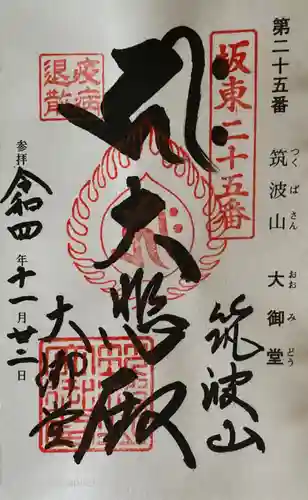 第二十五番 筑波山 大御堂
つくばさん おおみどう
坂東二十五番
筑波山
大悲殿
疫病
退散
大御堂
参拝 令和四年十一月廿二日